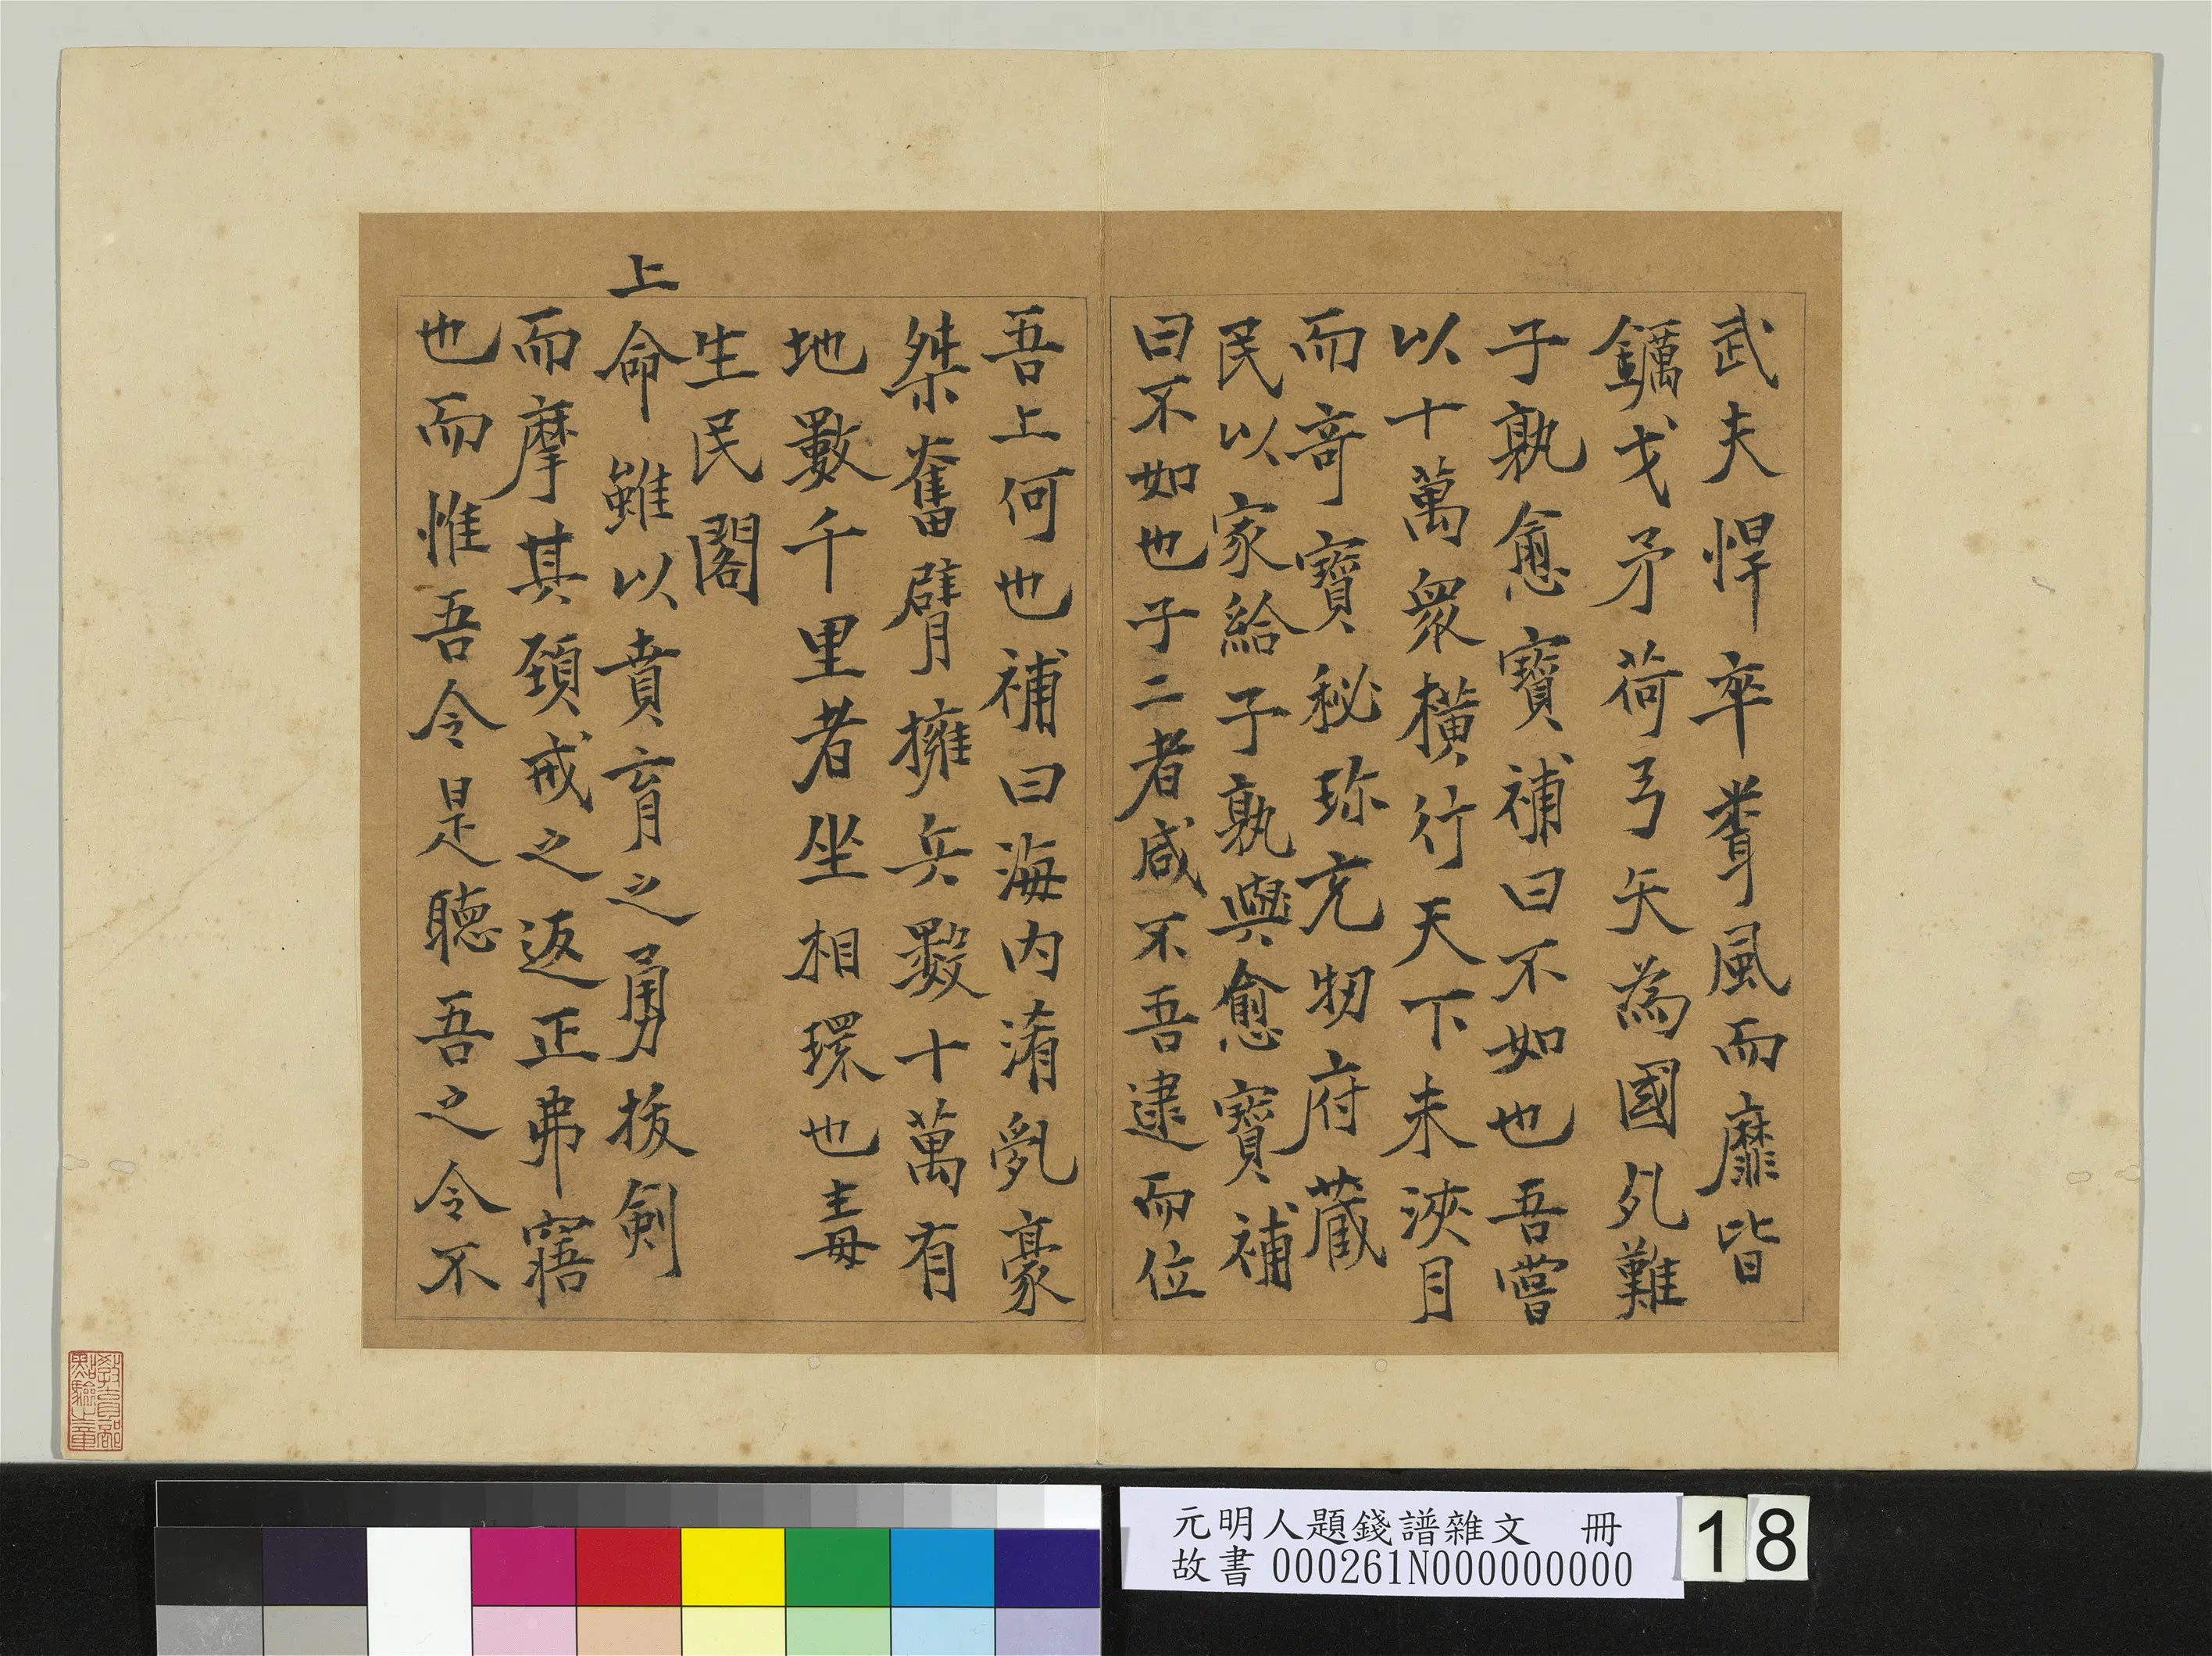 武夫悍卒聳風而靡皆
鑴戈矛荷弓矢為國夷難
子孰愈寶補曰不如也吾嘗
以十萬衆橫行天下未浹月
而奇寶秘珎充牣府藏
民以家給子孰與愈寶補
曰不如也子二者咸不吾逮而位
吾上何也補曰海內淆亂豪
桀奮臂擁兵數十萬有
地數千里者坐相環也毒
生民閣
上命雖以賁育之勇拔劍
而摩其頚戒之返正弗寤
也而惟吾令是聽吾之令不
教育部
點驗之章
元明人題錢譜雜文　冊
故書 000261N000000000
18